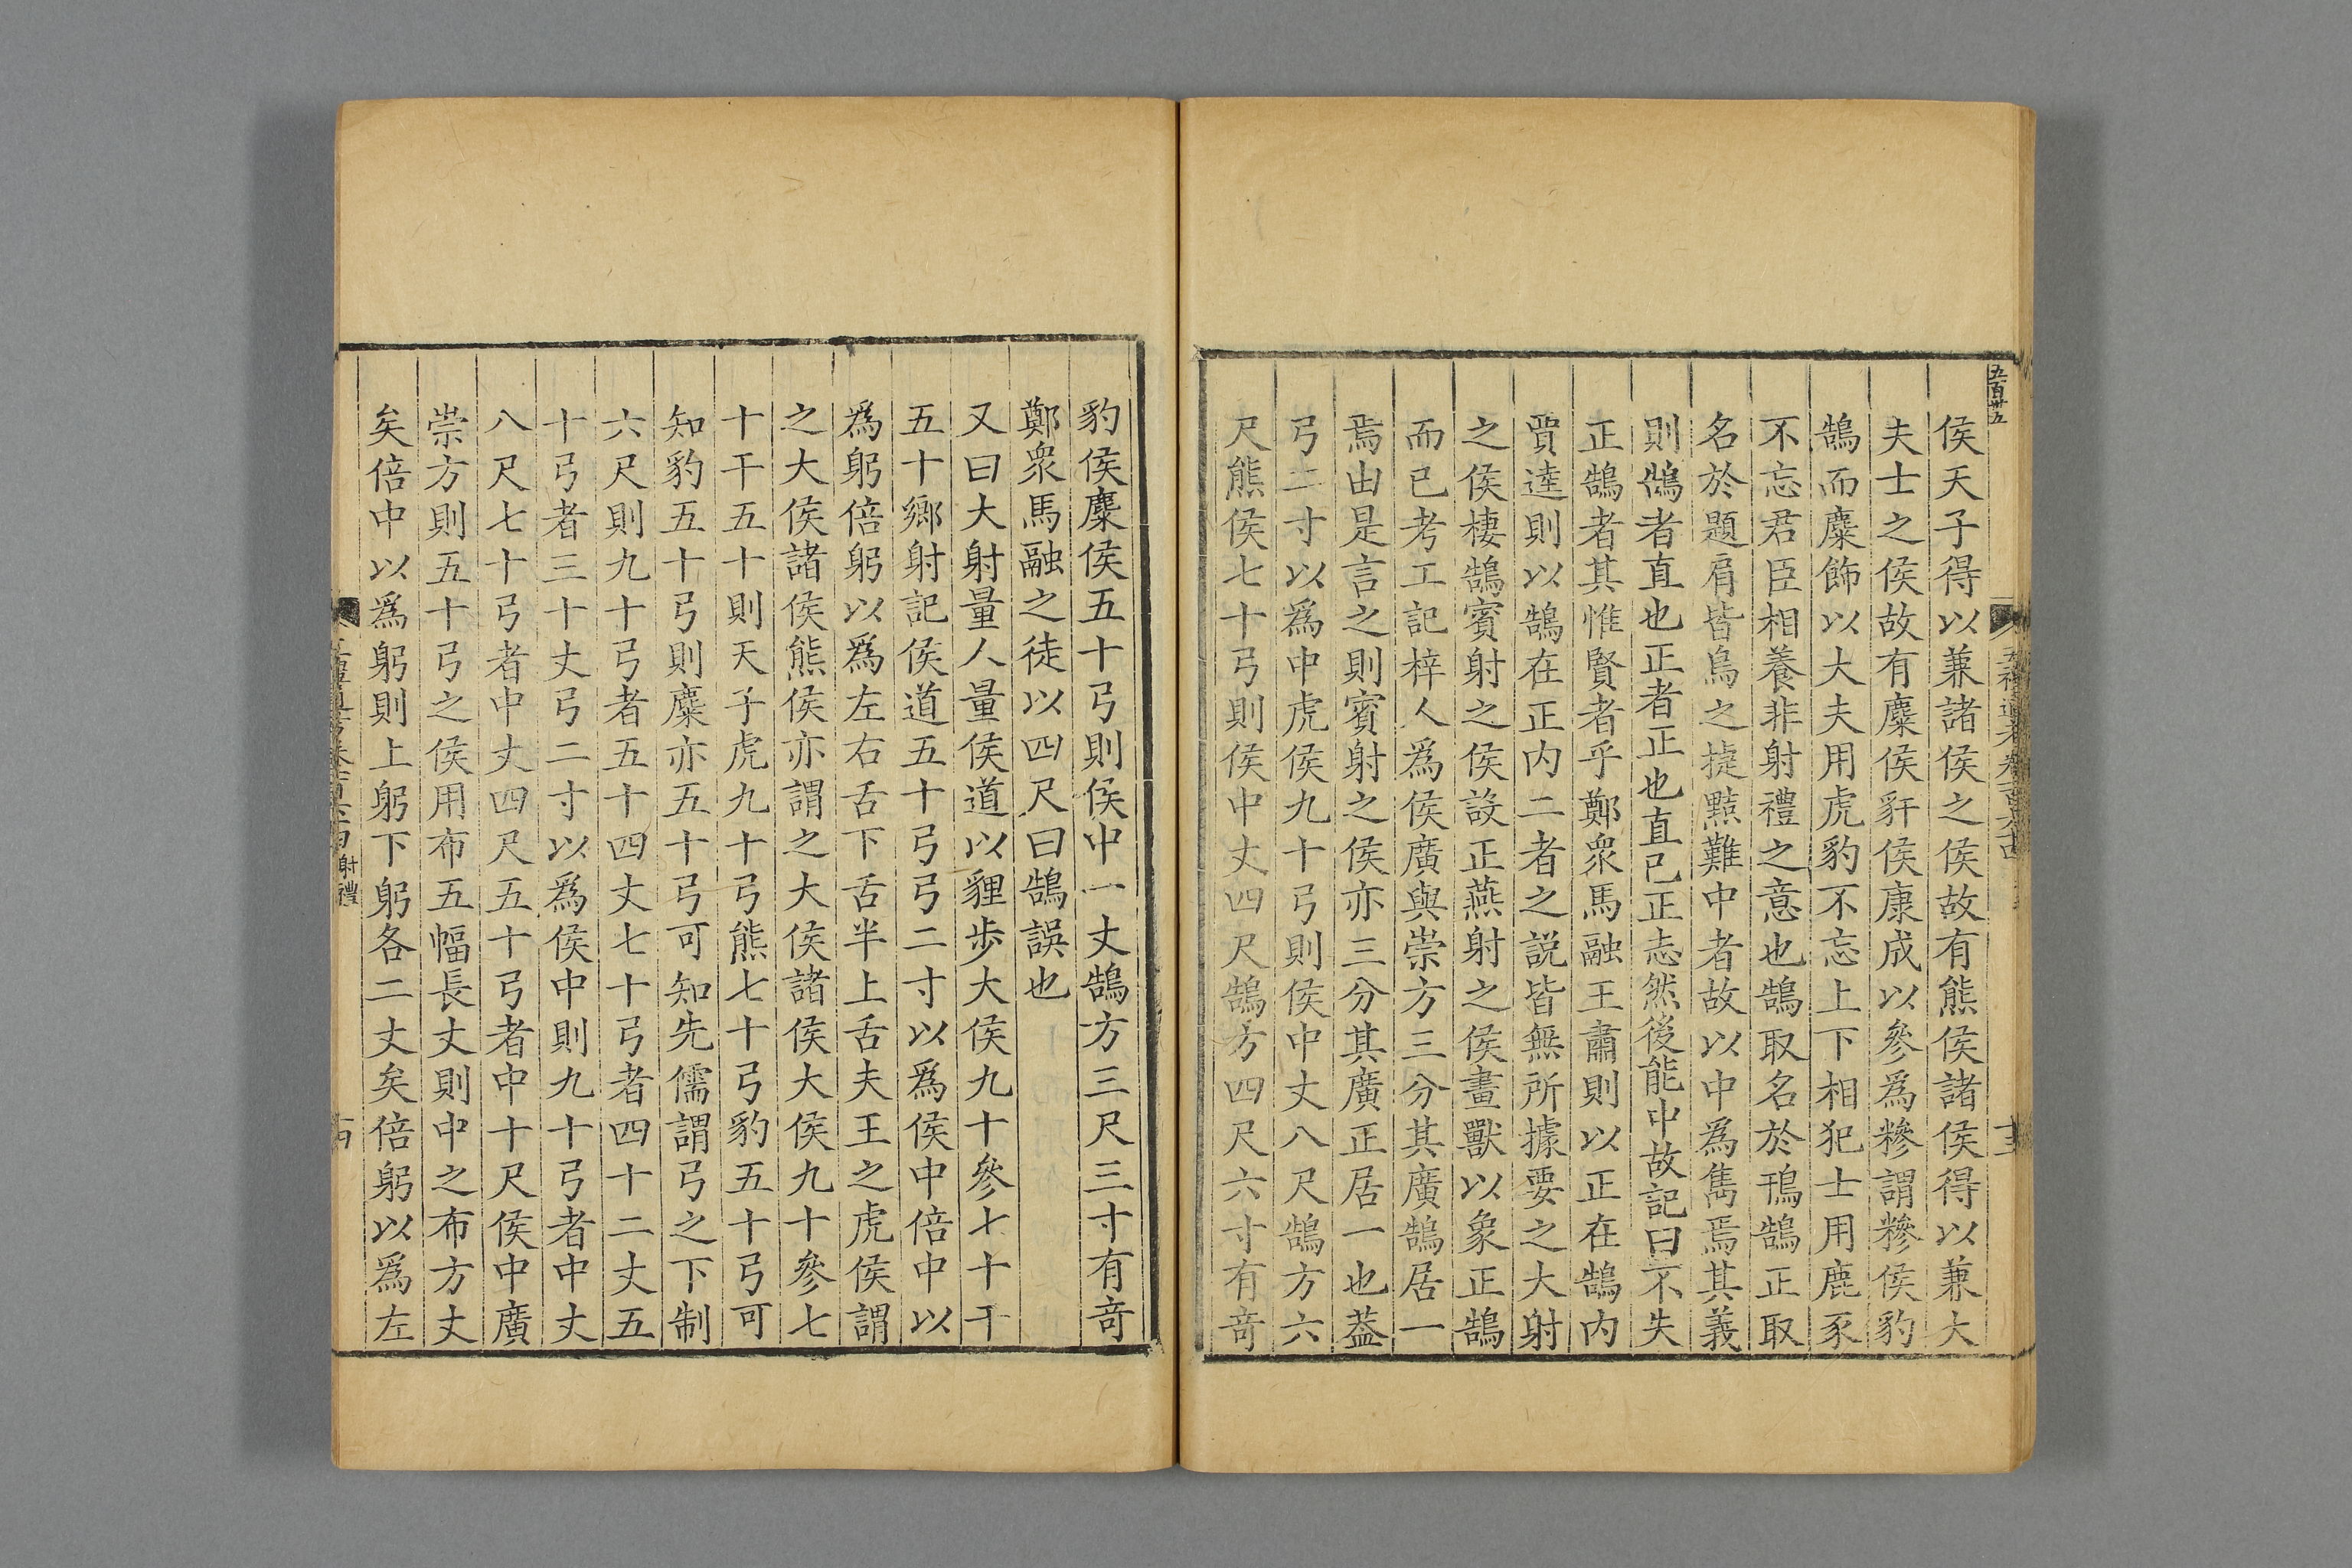 五百卅五
侯天子得以兼諸侯之侯故有熊侯諸侯得以兼大
夫士之侯故有麋侯豻侯康成以參爲糝謂糝侯豹
鵠而麋飾以大夫用虎豹不忘上下相犯士用鹿豕
不忘君臣相養非射禮之意也鵠取名於鳱鵠正取
名於題肩皆鳥之㨗㸃難中者故以中爲雋焉其義
則鵠者直也正者正也直已正志然後能中故記曰不失
正鵠者其惟賢者乎鄭衆馬融王肅則以正在鵠内
賈逵則以鵠在正内二者之説皆無所據要之大射
之侯棲鵠賓射之侯設正燕射之侯畫獸以象正鵠
而已考工記梓人爲侯廣與崇方三分其廣鵠居一
焉由是言之則賓射之侯亦三分其廣正居一也葢
弓二寸以爲中虎侯九十弓則侯中丈八尺鵠方六
尺熊侯七十弓則侯中丈四尺鵠方四尺六寸有竒
豹侯麋侯五十弓則侯中一丈鵠方三尺三寸有竒
鄭衆馬融之徒以四尺曰鵠誤也
又曰大射量人量侯道以貍步大侯九十參七十干
五十鄉射記侯道五十弓弓二寸以爲侯中倍中以
爲躬倍躬以爲左右舌下舌半上舌夫王之虎侯謂
之大侯諸侯熊侯亦謂之大侯諸侯大侯九十參七
十干五十則天子虎九十弓熊七十弓豹五十弓可
知豹五十弓則麋亦五十弓可知先儒謂弓之下制
六尺則九十弓者五十四丈七十弓者四十二丈五
十弓者三十丈弓二寸以爲侯中則九十弓者中丈
八尺七十弓者中丈四尺五十弓者中十尺侯中廣
崇方則五十弓之侯用布五幅長丈則中之布方丈
矣倍中以爲躬則上躬下躬各二丈矣倍躬以爲左
射禮